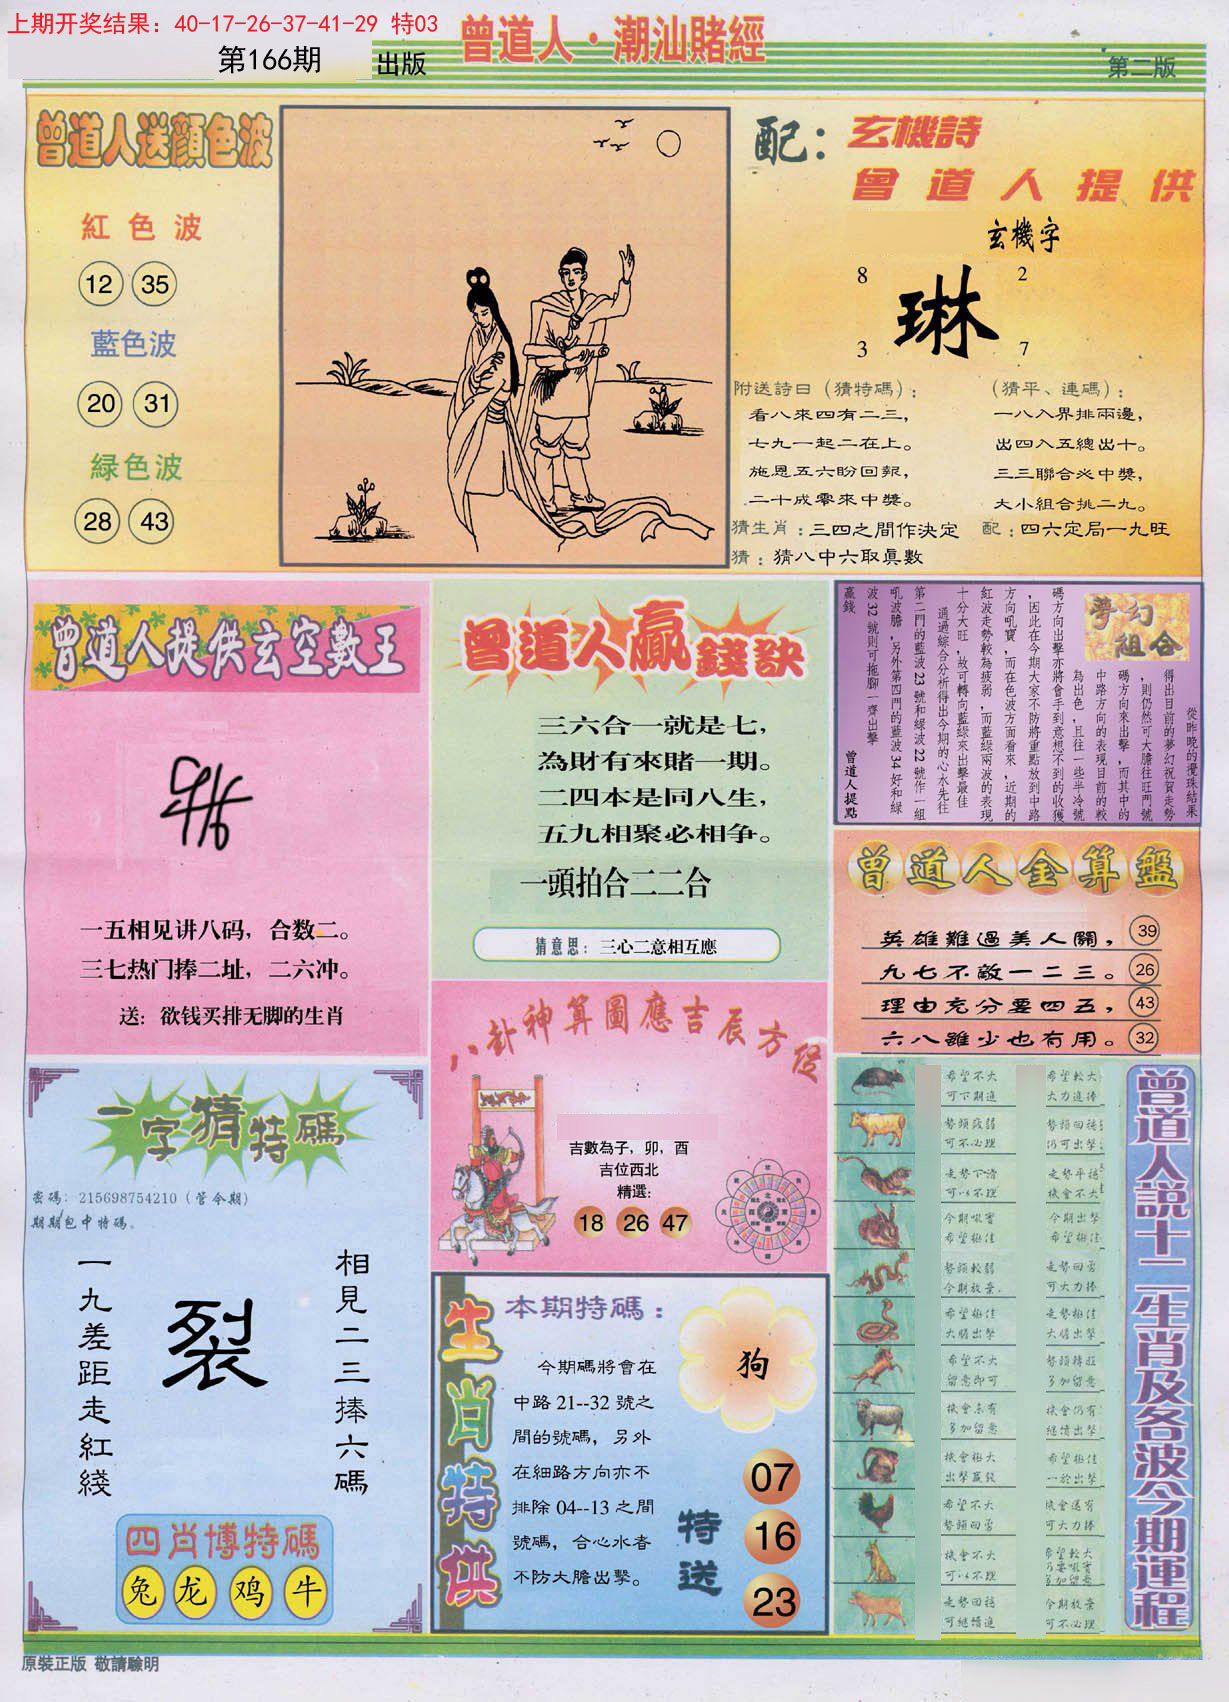 上期开奖结果：40-17-26-37-41-29 特03
第166期
出版
曾道人·潮汕賭經
第二版
曾道人送顔色波
紅色波
12 35
藍色波
20 31
緑色波
28 43
配：玄機詩
曾道人提供
玄機字
8 2
琳
3 7
附送詩曰（猜特碼）：
看八來四有二三，
七九一起二在上。
施恩五六盼回報，
二十成零來中獎。
（猜平、連碼）：
一八入界排兩邊，
出四入五總出十。
三三聯合必中獎，
大小組合挑二九。
猜生肖：三四之間作決定 配：四六定局一九旺
猜：猜八中六取真數
曾道人提供玄空數王
一五相见讲八码，合数二。
三七热门捧二址，二六冲。
送：欲钱买排无脚的生肖
曾道人贏錢訣
三六合一就是七，
為財有來賭一期。
二四本是同八生，
五九相聚必相争。
一頭拍合二二合
猜意思：三心二意相互應
夢幻組合
從昨晚的攪珠結果
得出目前的夢幻祝賀走勢
，則仍然可大膽往旺門號
碼方向來出擊，而其中的
中路方向的表現目前的較
為出色，且往一些半冷號
碼方向出擊亦將會手到意想不到的收獲
，因此在今期大家不防將重點放到中路
方向吼寶，而在色波方面看來，近期的
紅波走勢較為疲弱，而藍綠兩波的表現
十分大旺，故可轉向藍綠來出擊最佳
通過綜合分析得出今期的心水先往
第二門的藍波23號和緑波22號作一組
吼波膽，另外第四門的藍波34好和綠
波32號則可拖腳一齊出擊
贏錢
曾道人提點
曾道人金算盤
英雄難過美人關， 39
九七不敵一二三。 26
理由充分要四五， 43
六八雖少也有用。 32
八卦神算圖應吉辰方位
吉數為子，卯，酉
吉位西北
精選：
18 26 47
一字猜特碼
密碼：215698754210（管今期）
期期包中特碼。
相見二三捧六碼
裂
一九差距走紅綫
四肖博特碼
兔 龙 鸡 牛
生肖特供
本期特碼：
今期碼將會在
中路21--32號之
間的號碼，另外
在細路方向亦不
排除04--13之間
號碼，合心水者
不防大膽出擊。
狗
特送
07
16
23
曾道人說十二生肖及各波今期運程
希望不大
可下期進
希望較大
大力進捧
勢頭疲弱
可不必理
勢頭回穩
仍可出擊
走勢下滑
可以不理
走勢平穩
機會不大
今期吸實
希望極佳
今期出擊
希望極佳
勢頭較弱
今期放棄.
走勢回勇
可大力捧
希望極佳
大膽出擊
走勢極佳
大膽出擊
希望不大
留意即可
勢頭轉旺
多加留意
機會未有
多加留意
機會仍有
繼續出擊
機會極大
出擊贏錢
希望極佳
一於出擊
希望不大
勢頭回勇
可大力捧
機會不大
可以不理
希望較大
多加留意
走勢回穩
可繼續進
今期放棄
可不必理
原裝正版 敬請驗明